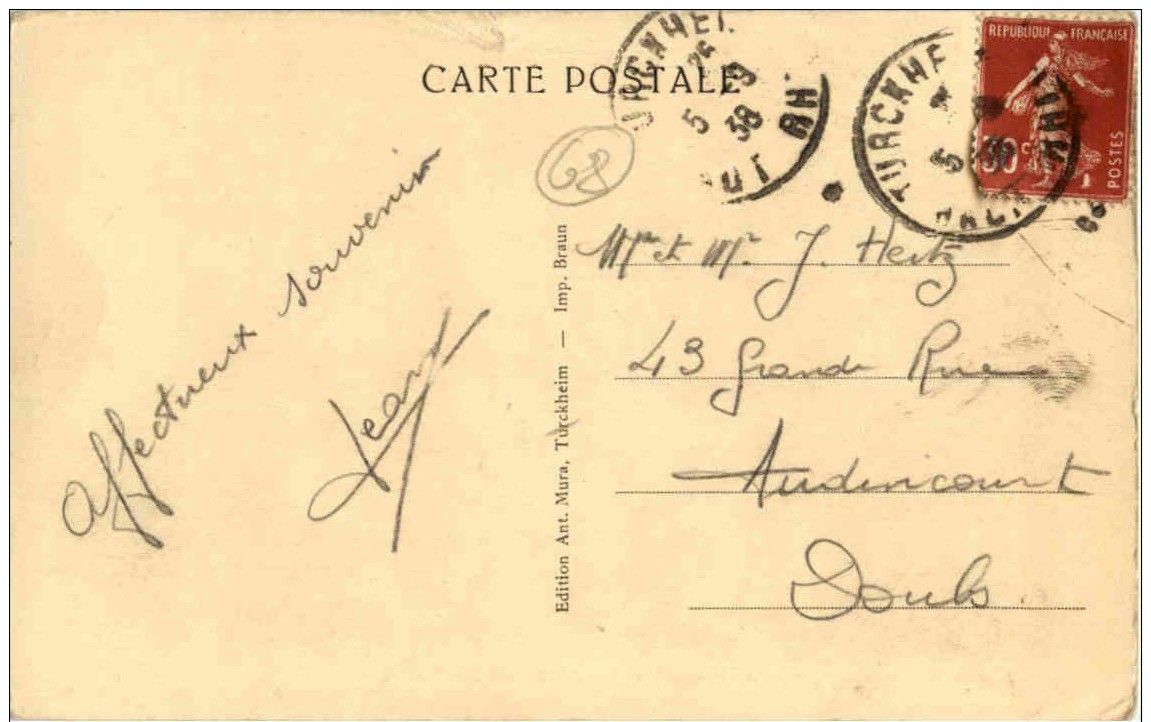 CARTE POSTALE
TURCKHEI
5
38
UT RH
TURCKHE
5
REPUBLIQUE FRANÇAISE
30 c
POSTES
68
Affectueux souvenir
Jean
Edition Ant. Mura, Turckheim — Imp. Braun
Mr et Me J. Hertz
43 Grande Rue
Audincourt
Doubs